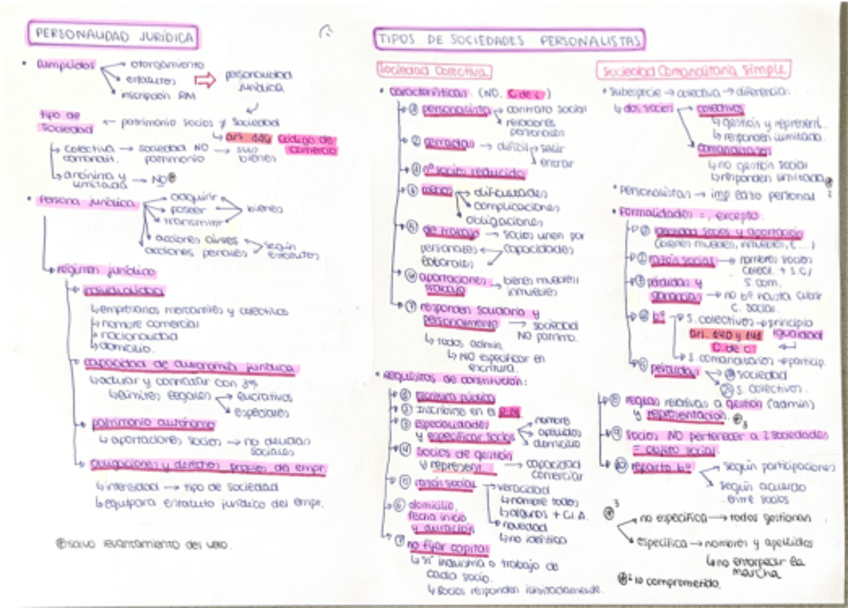 PERSONALIDAD JURÍDICA
• cumplidos → otorgamiento
→ estatutos ⇒ personalidad jurídica
→ inscripción RM
tipo de sociedad ← patrimonio socios y sociedad
↳ colectiva comandit. → sociedad NO patrimonio → sus bienes
↳ anónima y limitada → NO
código de comercio
• persona jurídica → adquirir
→ poseer → bienes
→ transmitir
→ acciones civiles
acciones penales → según estatutos
régimen jurídico
individualidad
↳ empresarios mercantiles y colectivos
↳ nombre comercial
↳ nacionalidad
↳ domicilio.
capacidad de autonomía jurídica
↳ actuar y contratar con 3ºs
↳ límites legales → lucrativos
→ especiales
patrimonio autónomo
↳ aportaciones socios → no deudas sociales
obligaciones y derechos propios del empr.
↳ intensidad → tipo de sociedad
↳ equipara estatuto jurídico del empr.
* salvo levantamiento del velo.
TIPOS DE SOCIEDADES PERSONALISTAS
Sociedad Colectiva
• características: (NO. C. de c.)
① personalista → contrato social
→ relaciones personales
② cerradas → difícil → salir
→ entrar
③ nº socios reducido
④ → dificultades
→ complicaciones
→ obligaciones
⑤ de trabajo → socios unen por
personales ← capacidades
laborales
⑥ aportaciones → bienes muebles/
trabajo inmuebles
⑦ responden solidario y
personalmente → sociedad
NO patrim.
↳ todos admin.
↳ NO especificar en
escritura.
• Requisitos de constitución:
① Escritura pública
② Inscribirse en el R.M.
③ especialidades → nombre
y especificar socios → apellidos
→ domicilio
④ socios de gestión
y represent. → capacidad
comerciar
⑤ razón social → veracidad
↳ nombre todos
↳ algunos + CIA.
↳ novedad
↳ no idéntica
⑥ domicilio,
fecha inicio
y duración
⑦ no fijar capital
↳ sí industria o trabajo de
cada socio.
↳ socios responden ilimitadamente.
Sociedad Comanditaria Simple
• subespecie → colectiva → diferencia:
↳ dos socios → colectivos
↳ gestión y represent.
↳ responden ilimitada.
→ comanditarios
↳ no gestión social
↳ responden limitada
• personalistas → imp. personal
• Formalidades =, excepto:
① identidad socios y aportación
(bienes muebles, inmuebles, ...)
② razón social → nombres socios
colect. + S.C/
S. com.
③ pérdidas y
ganancias → no bº hasta cubrir
C. social.
④ bº → S. colectivos → principio
igualdad
art. 140 y 141
C. de c.
→ S. comanditarios → particip.
⑤ pérdidas → sociedad
→ S. colectivos.
reglas relativas a gestión (admin)
y representación. *3
socios NO pertenecer a 2 sociedades
= objeto social.
reparto bº → según participaciones
→ según acuerdo
entre socios
*3 → no específica → todos gestionan
→ específica → nombres y apellidos
↳ no entorpecer la
marcha
*2 lo comprometido.